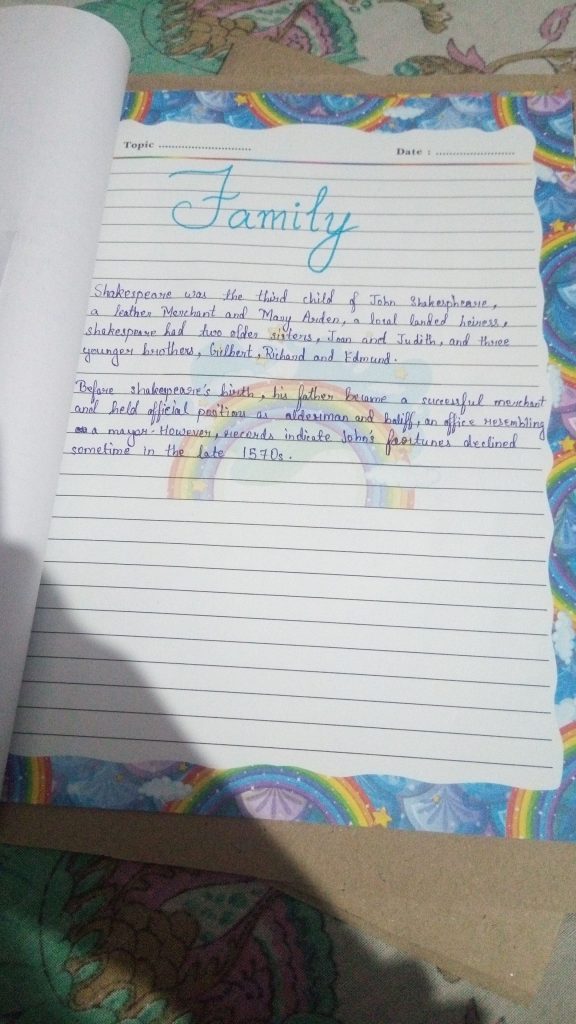 Topic ..............................
Date : ..........................
Family
Shakespeare was the third child of John Shakespheare,
a leather Merchant and Mary Arden, a local landed heiress,
shakespeare had two older sisters, Joan and Judith, and three
younger brothers, Gilbert, Richard and Edmund.
Before shakespeare's birth, his father became a successful merchant
and held official positions as alderman and baliff, an office resembling
a mayor. However, records indicate John's foortunes declined
sometime in the late 1570s.